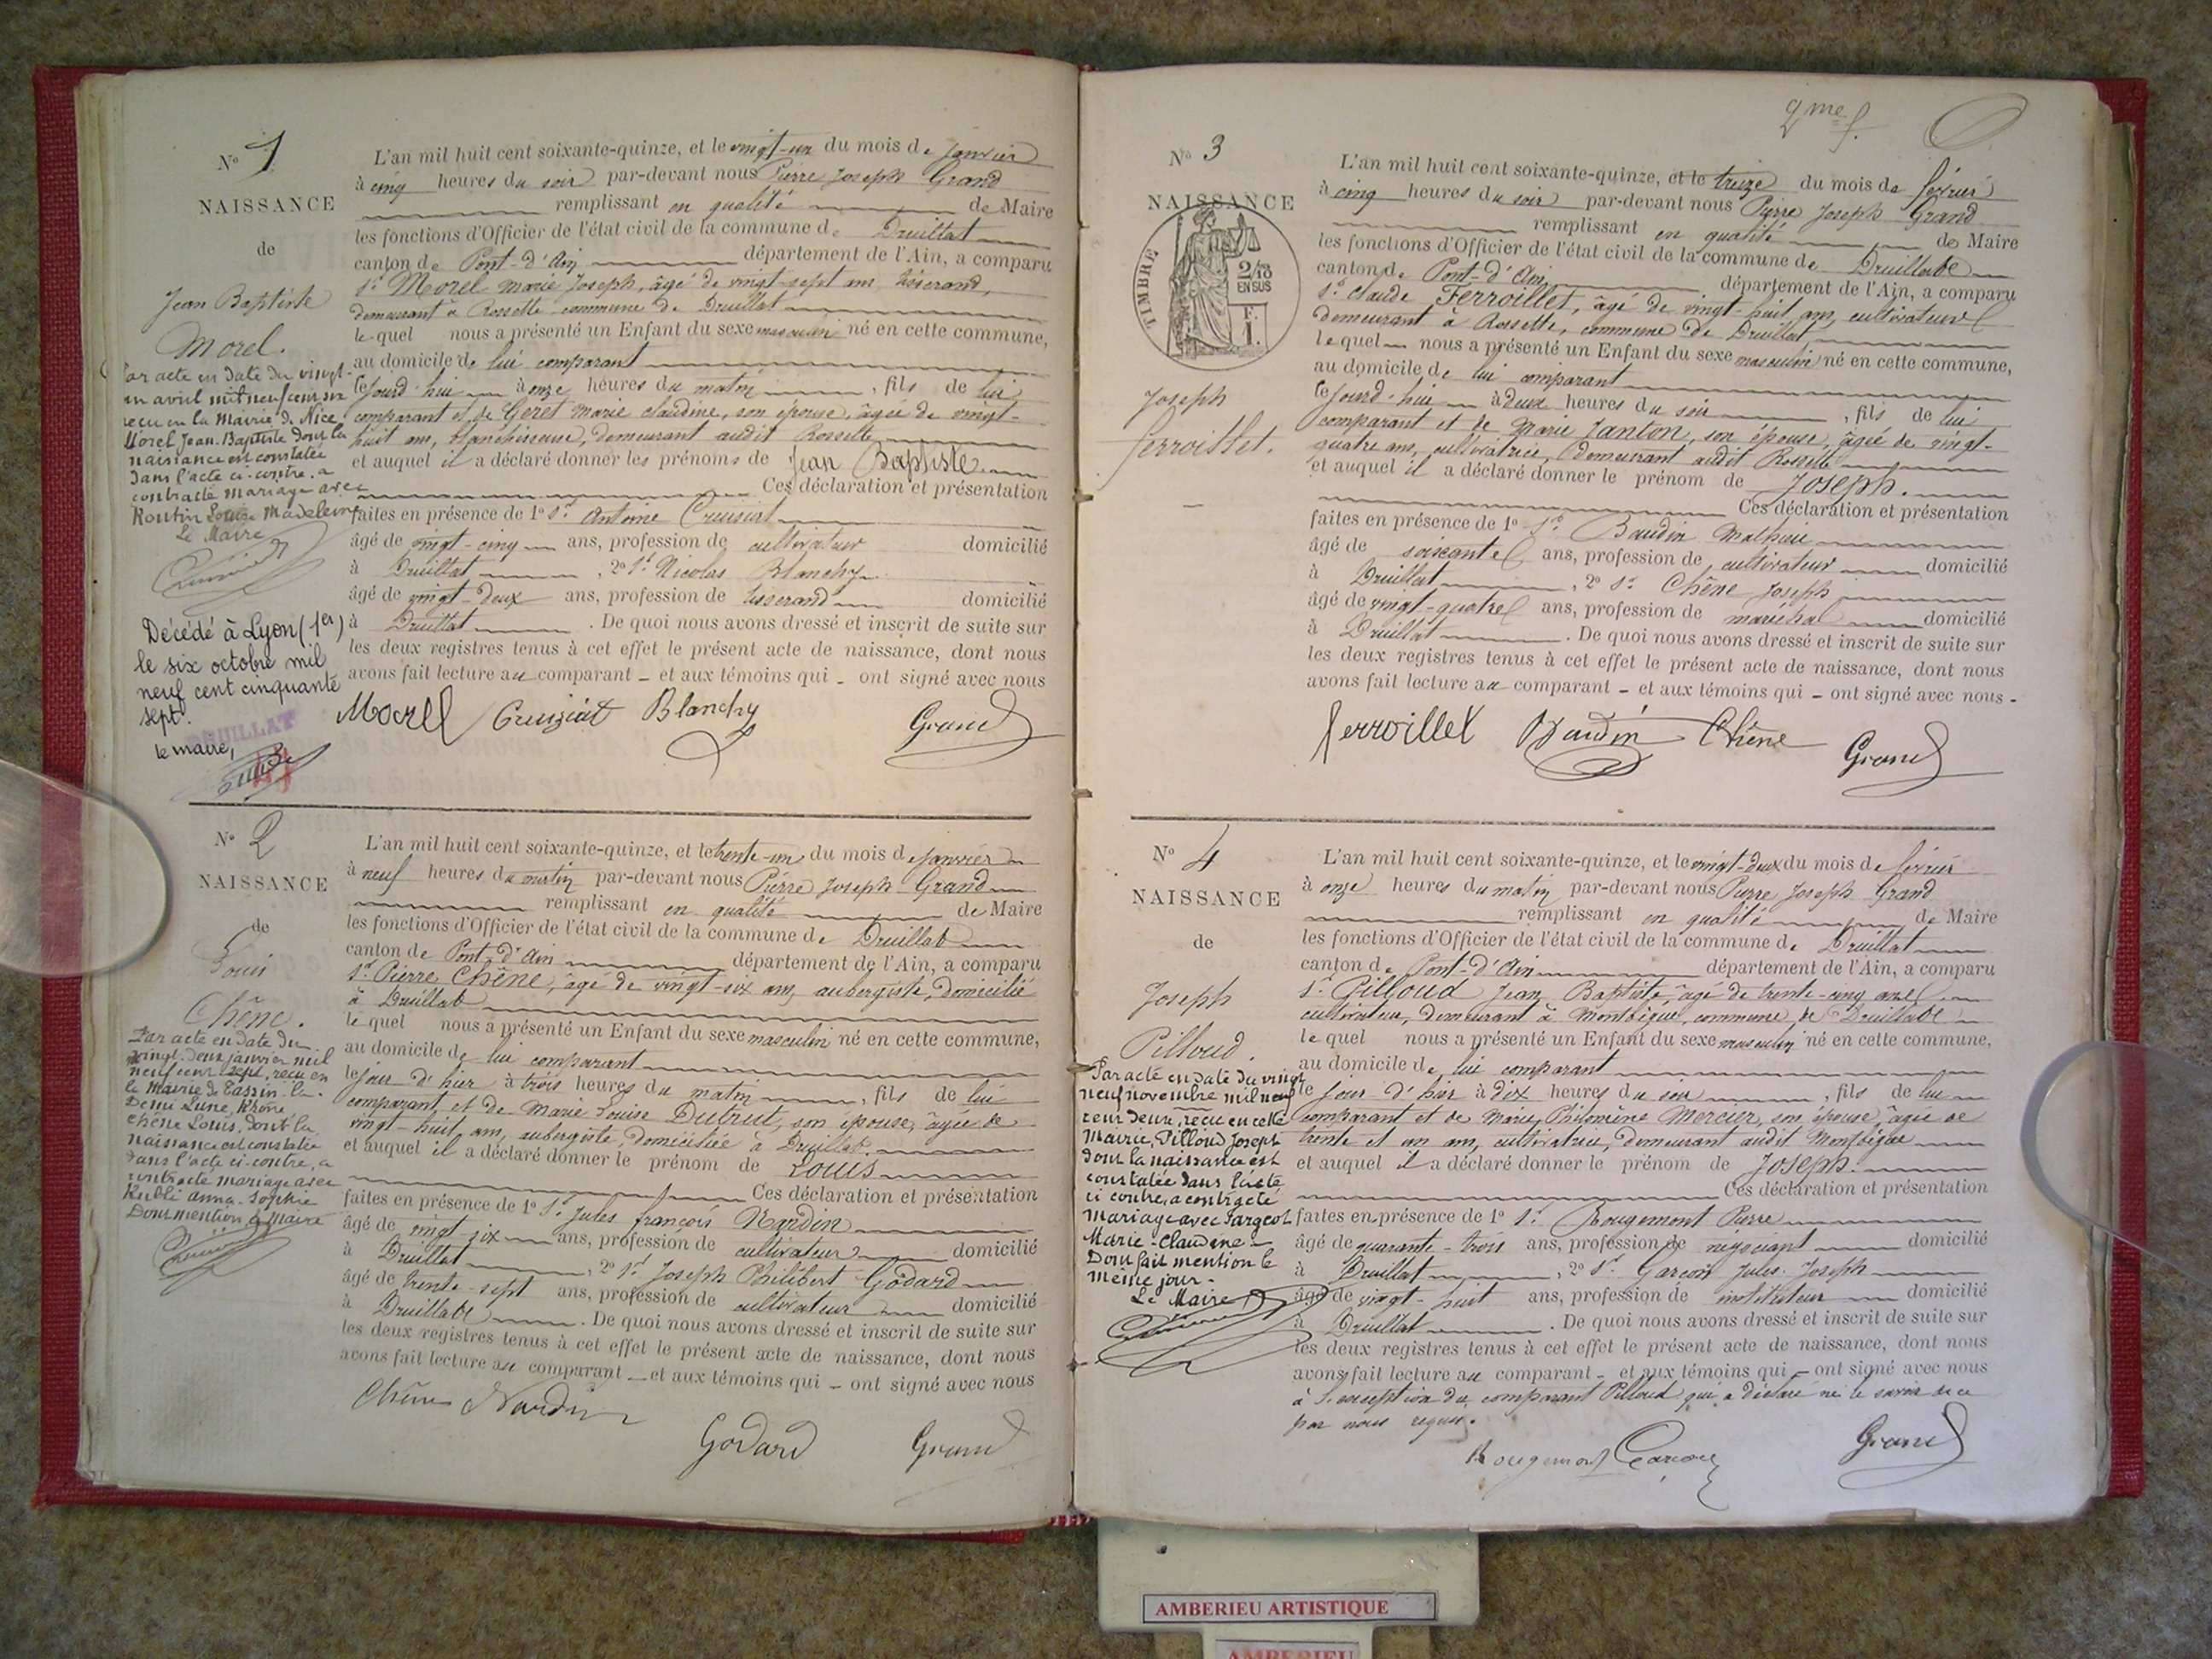 N° 1
NAISSANCE
de
Jean Baptiste
Morel.
Par acte en date du vingt-
un avril mil neuf cent six
reçu en la Mairie de Nice
Morel Jean-Baptiste dont la
naissance est constatée
dans l'acte ci-contre, a
contracté mariage avec
Routin Louise Madeleine
Le Maire
Décédé à Lyon (1er)
le six octobre mil
neuf cent cinquante
sept.
DRUILLAT
le maire,
L'an mil huit cent soixante-quinze, et le vingt-un du mois de Janvier
à cinq heures du soir par-devant nous Pierre Joseph Grand
remplissant en qualité de Maire
les fonctions d'Officier de l'état civil de la commune de Druillat
canton de Pont-d'Ain département de l'Ain, a comparu
Sr. Morel Marie Joseph, âgé de vingt-sept ans, tisserand,
demeurant à Rossette commune de Druillat
lequel nous a présenté un Enfant du sexe masculin né en cette commune,
au domicile de lui comparant
cejourd'hui à onze heures du matin, fils de lui
comparant et de Geret Marie Claudine, son épouse, âgée de vingt-
huit ans, blanchisseuse, demeurant audit Rossette
et auquel il a déclaré donner les prénoms de Jean Baptiste
Ces déclaration et présentation
faites en présence de 1° Sr. Antoine Creuziat
âgé de vingt-cinq ans, profession de cultivateur domicilié
à Druillat, 2° Sr. Nicolas Blanchy
âgé de vingt-deux ans, profession de tisserand domicilié
à Druillat. De quoi nous avons dressé et inscrit de suite sur
les deux registres tenus à cet effet le présent acte de naissance, dont nous
avons fait lecture au comparant et aux témoins qui ont signé avec nous
Morel Creuziat Blanchy Grand
N° 2
NAISSANCE
de
Louis
Chêne.
Par acte en date du
vingt-deux janvier mil
neuf cent sept, reçu en
la Mairie de Tassin-la-
Demi-Lune, Rhône
Chêne Louis, dont la
naissance est constatée
dans l'acte ci-contre, a
contracté mariage avec
Kubli Anna-Sophie
Dont mention le Maire
L'an mil huit cent soixante-quinze, et le trente-un du mois de Janvier
à neuf heures du matin par-devant nous Pierre Joseph Grand
remplissant en qualité de Maire
les fonctions d'Officier de l'état civil de la commune de Druillat
canton de Pont-d'Ain département de l'Ain, a comparu
Sr. Pierre Chêne, âgé de vingt-six ans, aubergiste, domicilié
à Druillat
lequel nous a présenté un Enfant du sexe masculin né en cette commune,
au domicile de lui comparant
le jour d'hier à trois heures du matin, fils de lui
comparant, et de Marie Louise Dubrut, son épouse, âgée de
vingt-huit ans, aubergiste, domiciliée à Druillat.
et auquel il a déclaré donner le prénom de Louis
Ces déclaration et présentation
faites en présence de 1° Sr. Jules François Nardin
âgé de vingt-six ans, profession de cultivateur domicilié
à Druillat, 2° Sr. Joseph Philibert Godard
âgé de trente-sept ans, profession de cultivateur domicilié
à Druillat. De quoi nous avons dressé et inscrit de suite sur
les deux registres tenus à cet effet le présent acte de naissance, dont nous
avons fait lecture au comparant et aux témoins qui ont signé avec nous
Chêne Nardin
Godard Grand
2me f.
N° 3
NAISSANCE
TIMBRE
2/10
EN SUS
F.
1.
Joseph
Ferroillet.
L'an mil huit cent soixante-quinze, et le treize du mois de février
à cinq heures du soir par-devant nous Pierre Joseph Grand
remplissant en qualité de Maire
les fonctions d'Officier de l'état civil de la commune de Druillat
canton de Pont-d'Ain département de l'Ain, a comparu
Sr. Claude Ferroillet, âgé de vingt-huit ans, cultivateur
demeurant à Rossette, commune de Druillat
lequel nous a présenté un Enfant du sexe masculin né en cette commune,
au domicile de lui comparant
cejourd'hui à deux heures du soir, fils de lui
comparant et de Marie Janton, son épouse, âgée de vingt-
quatre ans, cultivatrice, demeurant audit Rossette
et auquel il a déclaré donner le prénom de Joseph.
Ces déclaration et présentation
faites en présence de 1° Sr. Baudin Mathieu
âgé de soixante ans, profession de cultivateur domicilié
à Druillat, 2° Sr. Chêne Joseph
âgé de vingt-quatre ans, profession de maréchal domicilié
à Druillat. De quoi nous avons dressé et inscrit de suite sur
les deux registres tenus à cet effet le présent acte de naissance, dont nous
avons fait lecture au comparant et aux témoins qui ont signé avec nous
Ferroillet Baudin Chêne Grand
N° 4
NAISSANCE
de
Joseph
Pilloud.
Par acte en date du vingt
neuf novembre mil neuf
cent deux, reçu en cette
Mairie, Pilloud Joseph
dont la naissance est
constatée dans l'acte
ci contre, a contracté
mariage avec Sargeot
Marie-Claudine
Dont fait mention le
même jour.
Le Maire
L'an mil huit cent soixante-quinze, et le vingt-deux du mois de février
à onze heures du matin par-devant nous Pierre Joseph Grand
remplissant en qualité de Maire
les fonctions d'Officier de l'état civil de la commune de Druillat
canton de Pont-d'Ain département de l'Ain, a comparu
Sr. Pilloud Jean Baptiste, âgé de trente-cinq ans
cultivateur, demeurant à Montbègue, commune de Druillat
lequel nous a présenté un Enfant du sexe masculin né en cette commune,
au domicile de lui comparant
le jour d'hier à dix heures du soir, fils de lui
comparant et de Marie Philomène Mercier, son épouse, âgée de
trente et un ans, cultivatrice, demeurant audit Montbègue
et auquel il a déclaré donner le prénom de Joseph.
Ces déclaration et présentation
faites en présence de 1° Sr. Rougemont Pierre
âgé de quarante-trois ans, profession de négociant domicilié
à Druillat, 2° Sr. Garçon Jules Joseph
âgé de vingt-huit ans, profession de instituteur domicilié
à Druillat. De quoi nous avons dressé et inscrit de suite sur
les deux registres tenus à cet effet le présent acte de naissance, dont nous
avons fait lecture au comparant et aux témoins qui ont signé avec nous
à l'exception du comparant Pilloud qui a déclaré ne le savoir de ce
par nous requis.
Rougemont Garçon Grand
AMBERIEU ARTISTIQUE
AMBERIEU